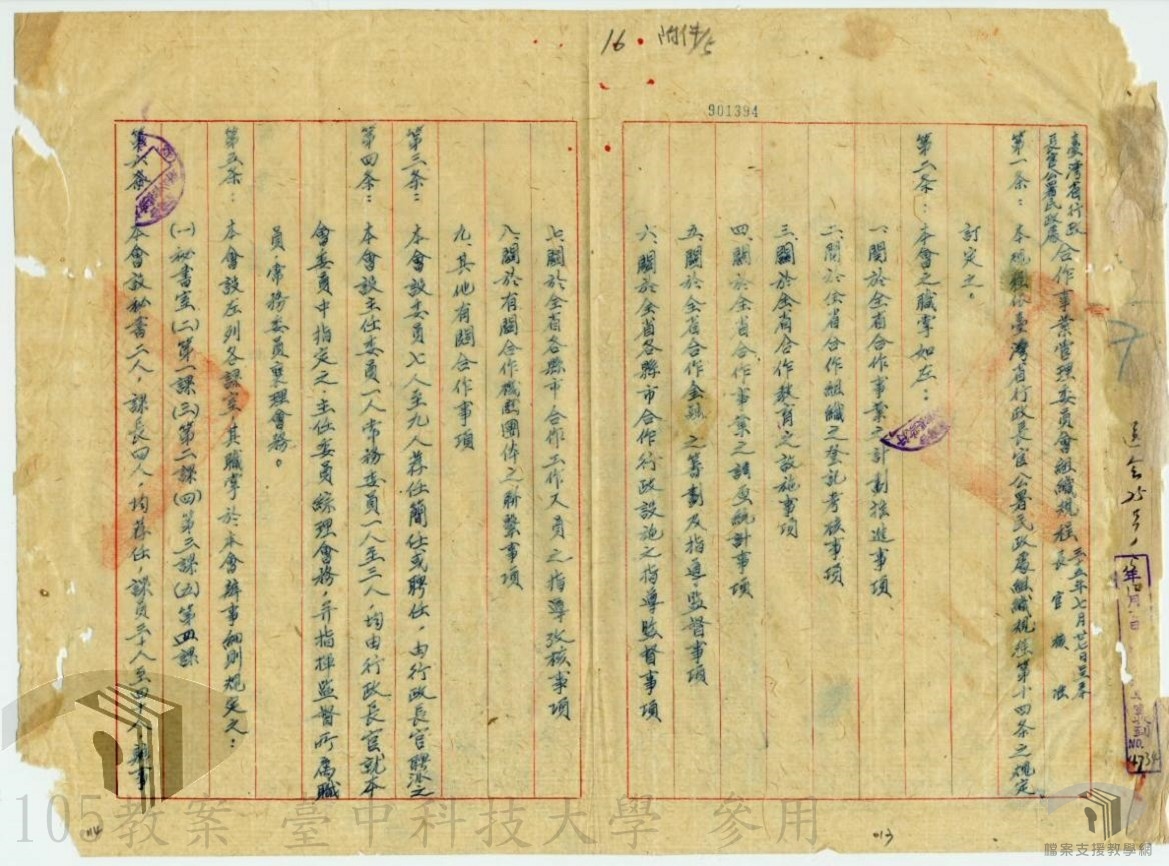 16. 附件5
901394
臺灣省行政
長官公署民政處
合作事業管理委員會組織規程
三五年七月廿七日
第一条：本規程依臺灣省行政長官公署民政處組織規程第十四条之規定
訂定之。
第二条：本會之職掌如左：
一、關於全省合作事業之計劃推進事項
二、關於全省合作組織之登記考核事項
三、關於全省合作教育之設施事項
四、關於全省合作事業之調查統計事項
五、關於全省合作金融之籌劃及指導監督事項
六、關於全省各縣市合作行政設施之指導監督事項
七、關於全省各縣市合作工作人員之指導考核事項
八、關於有關合作機關團体之聯繫事項
九、其他有關合作事項
第三条：本會設委員七人至九人荐任簡任或聘任，由行政長官聘派之
第四条：本會設主任委員一人常務委員一人至三人，均由行政長官就本
會委員中指定之，主任委員綜理會務，并指揮監督所屬職
員，常務委員襄理會務。
第五条：本會設左列各課室，其職掌於本會辦事細則規定之：
(一)秘書室(二)第一課(三)第二課(四)第三課(五)第四課
第六条：本會設秘書二人，課長四人，均荐任，課員三十人至四十人
NO.
4734
013
014
105教案 臺中科技大學 參用
檔案支援教學網